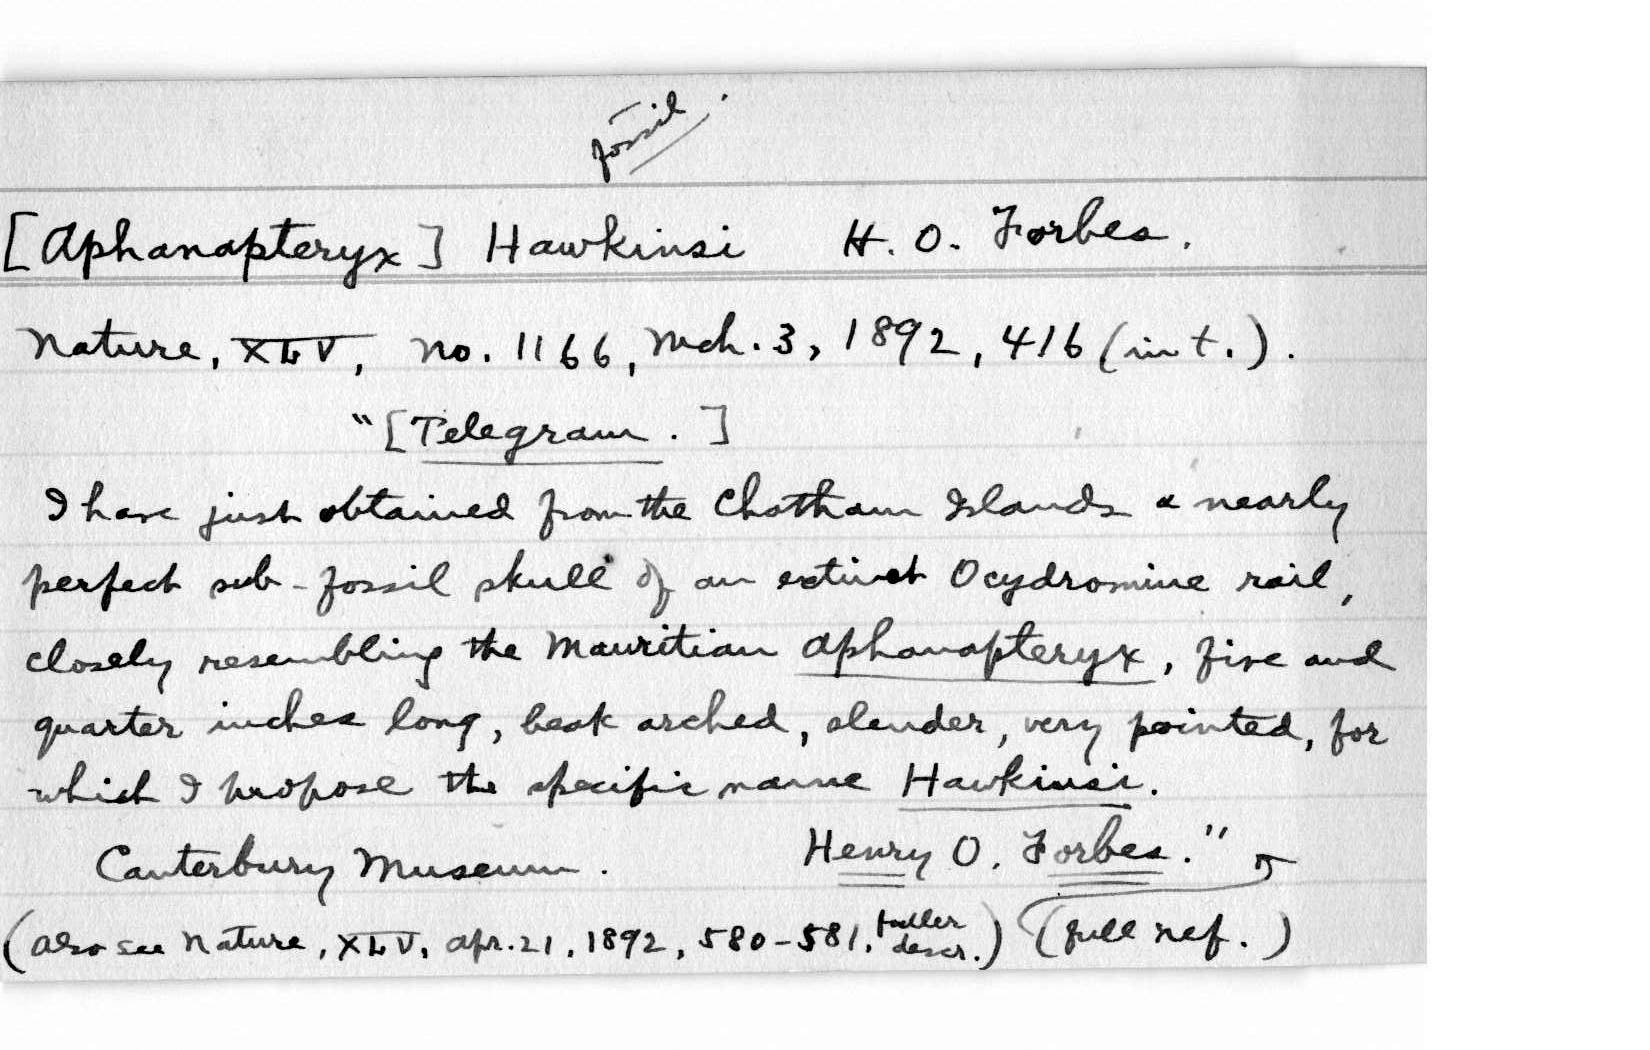 fossil.
[Aphanapteryx] Hawkinsi H. O. Forbes.
Nature, XLV, no. 1166, Mch. 3, 1892, 416 (in t.).
"[Telegram.]
I have just obtained from the Chatham Islands a nearly
perfect sub-fossil skull of an extinct Ocydromine rail,
closely resembling the Mauritian Aphanapteryx, five and
quarter inches long, beak arched, slender, very pointed, for
which I propose the specific name Hawkinsi.
Canterbury Museum. Henry O. Forbes."
(also see Nature, XLV, Apr. 21, 1892, 580-581, fuller descr.) (full ref.)